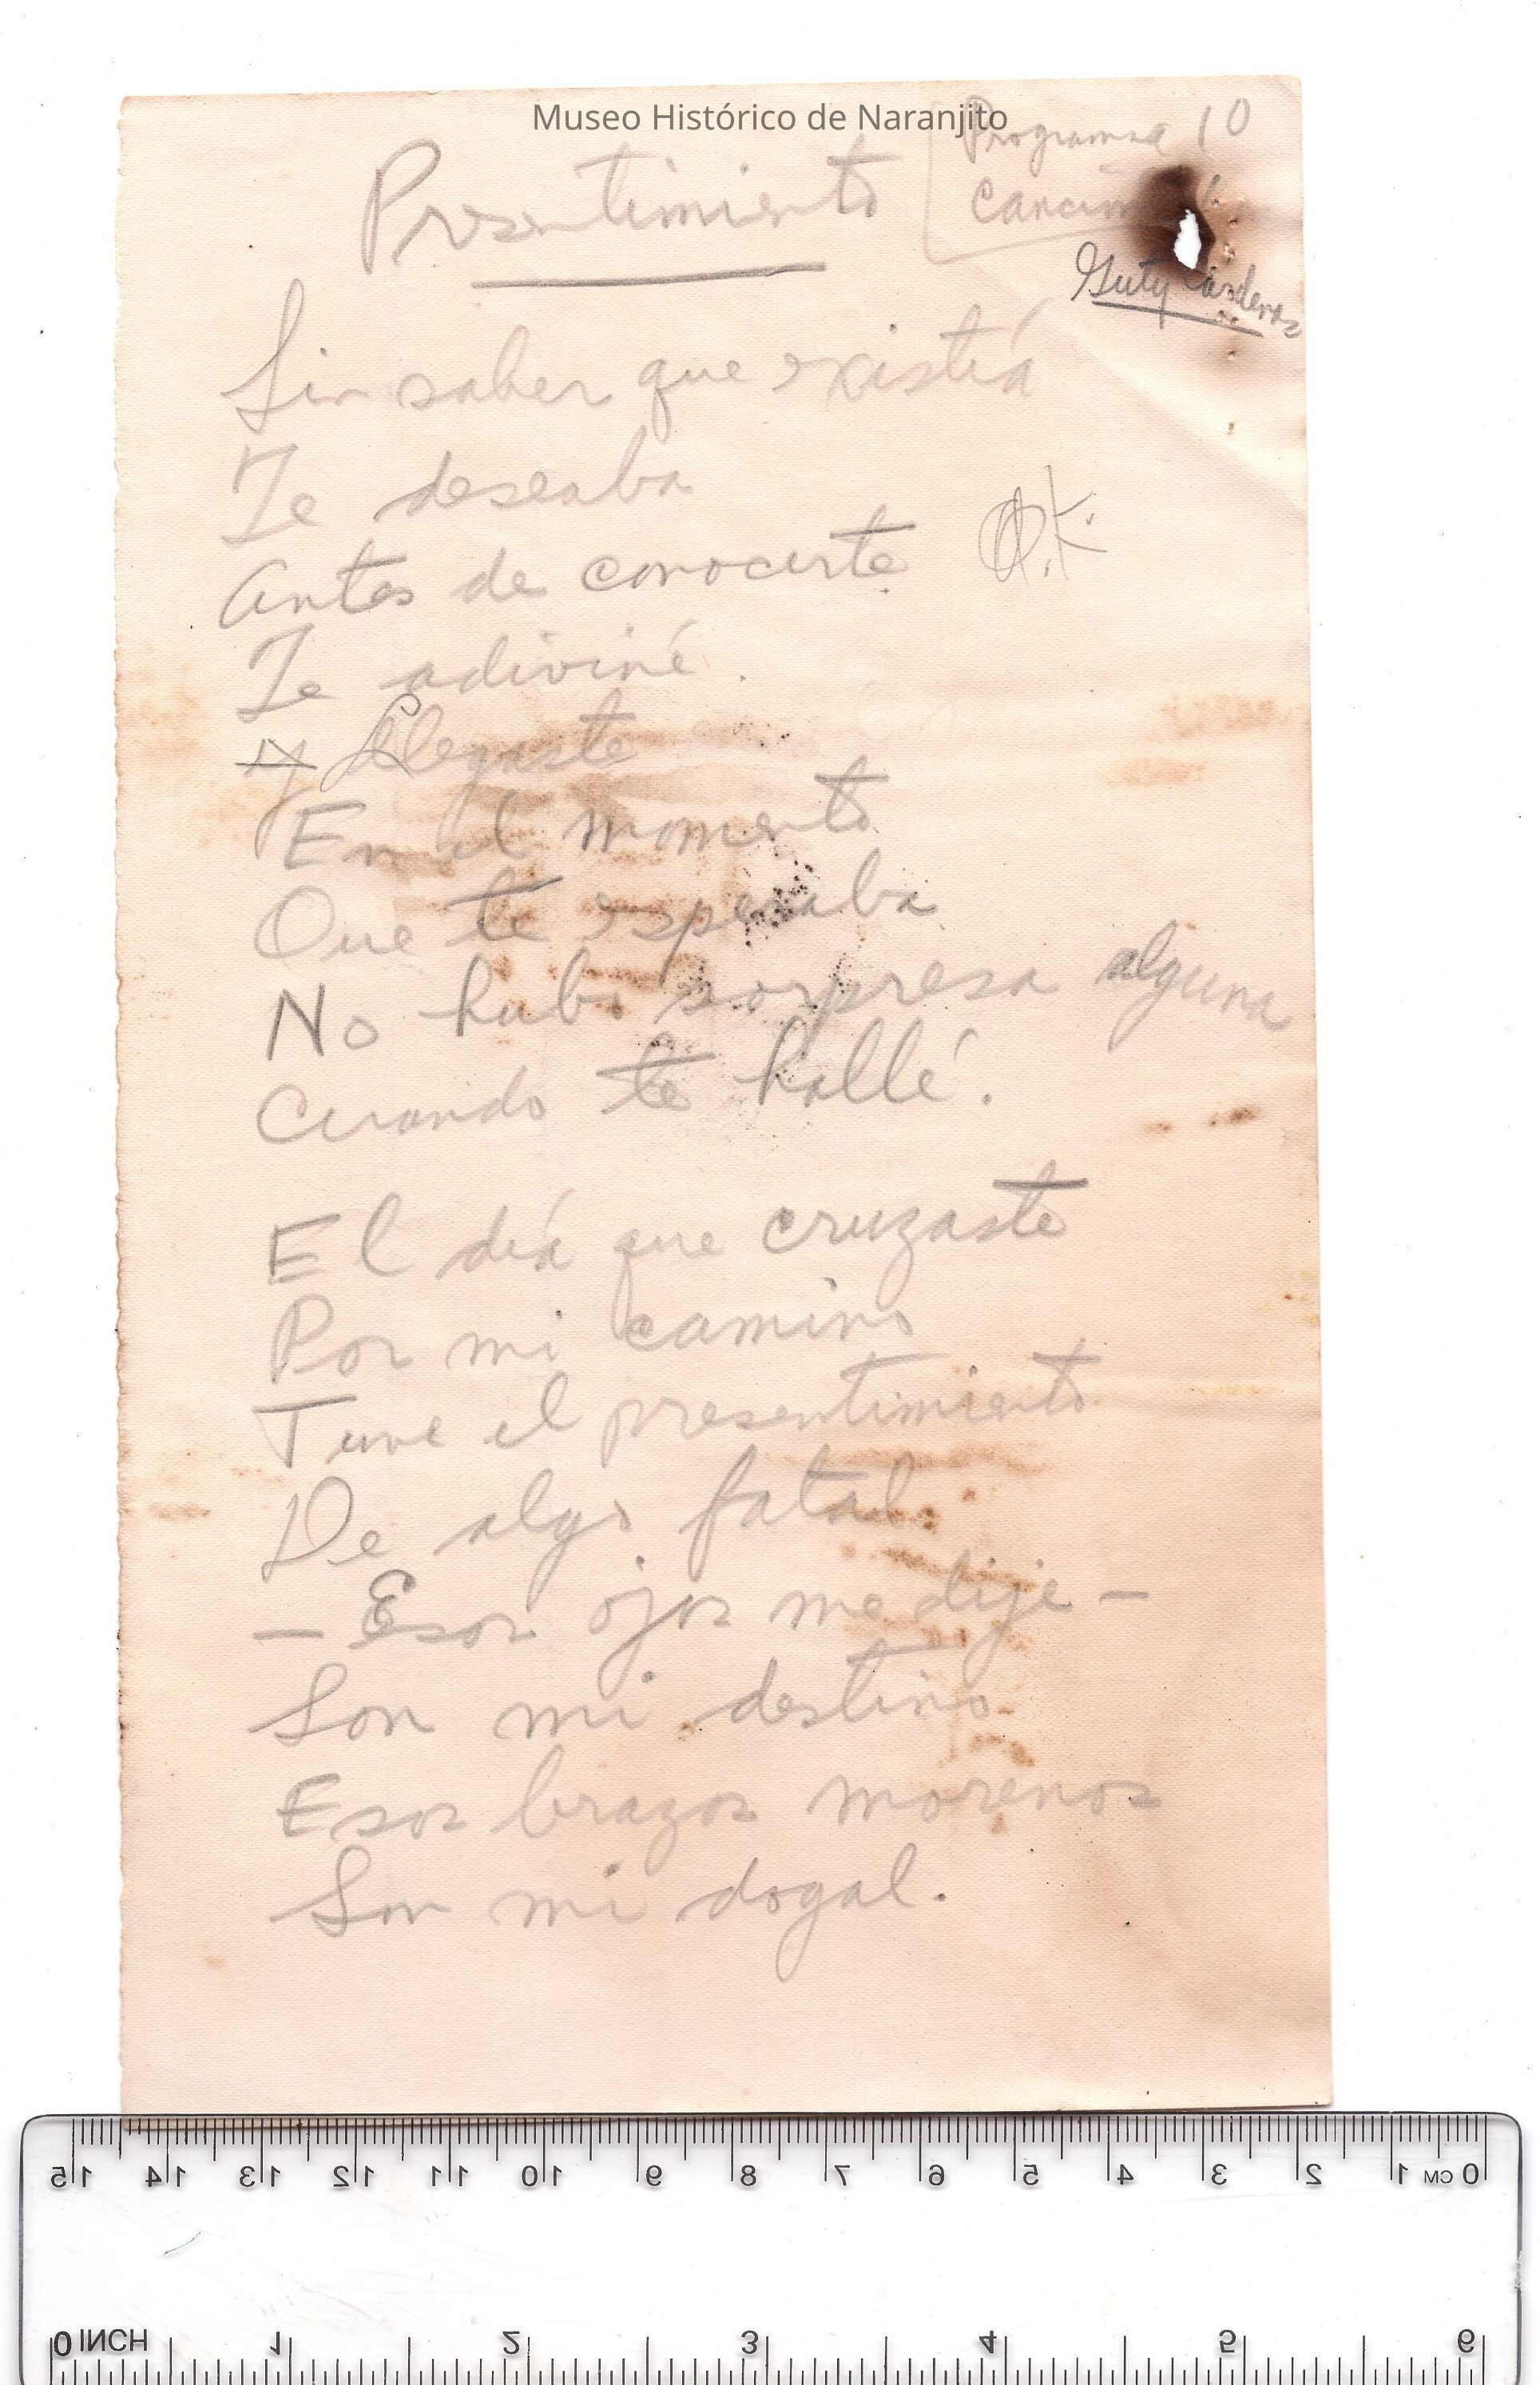 Museo Histórico de Naranjito
Programa 10
Canción
Presentimiento
Guty Cárdenas
Sin saber que existiá
Te deseaba
Antes de conocerte
O.K.
Te adiviné.
Y Llegaste
En el momento
Que te esperaba
No hubo sorpresa alguna
Cuando te hallé.
El diá que cruzaste
Por mi camino
Tuve el presentimiento
De algo fatal.
— Esos ojos me dije —
Son mi destino
Esos brazos morenos
Son mi dogal.
15 14 13 12 11 10 9 8 7 6 5 4 3 2 1 CM 0
0 INCH 1 2 3 4 5 6